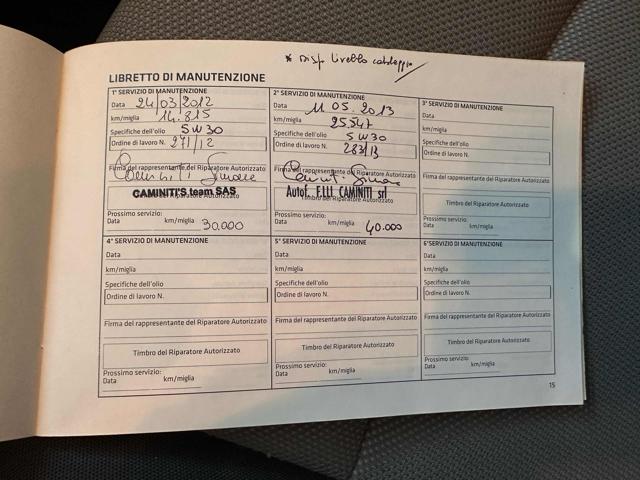 * risp Livello
LIBRETTO DI MANUTENZIONE
1° SERVIZIO DI MANUTENZIONE
Data 24/03/2012
km/miglia 14.815
Specifiche dell'olio 5W30
Ordine di lavoro N. 271/12
Firma del rappresentante del Riparatore Autorizzato
CAMINITI'S team SAS
Prossimo servizio:
Data km/miglia 30.000
2° SERVIZIO DI MANUTENZIONE
Data 11.05.2013
km/miglia 25.547
Specifiche dell'olio 5W30
Ordine di lavoro N. 283/13
Firma del rappresentante del Riparatore Autorizzato
Autof. F.LLI CAMINITI srl
Prossimo servizio:
Data km/miglia 40.000
3° SERVIZIO DI MANUTENZIONE
Data
km/miglia
Specifiche dell'olio
Ordine di lavoro N.
Firma del rappresentante del Riparatore Autorizzato
Timbro del Riparatore Autorizzato
Prossimo servizio:
Data km/miglia
4° SERVIZIO DI MANUTENZIONE
Data
km/miglia
Specifiche dell'olio
Ordine di lavoro N.
Firma del rappresentante del Riparatore Autorizzato
Timbro del Riparatore Autorizzato
Prossimo servizio:
Data km/miglia
5° SERVIZIO DI MANUTENZIONE
Data
km/miglia
Specifiche dell'olio
Ordine di lavoro N.
Firma del rappresentante del Riparatore Autorizzato
Timbro del Riparatore Autorizzato
Prossimo servizio:
Data km/miglia
6° SERVIZIO DI MANUTENZIONE
Data
km/miglia
Specifiche dell'olio
Ordine di lavoro N.
Firma del rappresentante del Riparatore Autorizzato
Timbro del Riparatore Autorizzato
Prossimo servizio:
Data km/miglia
15